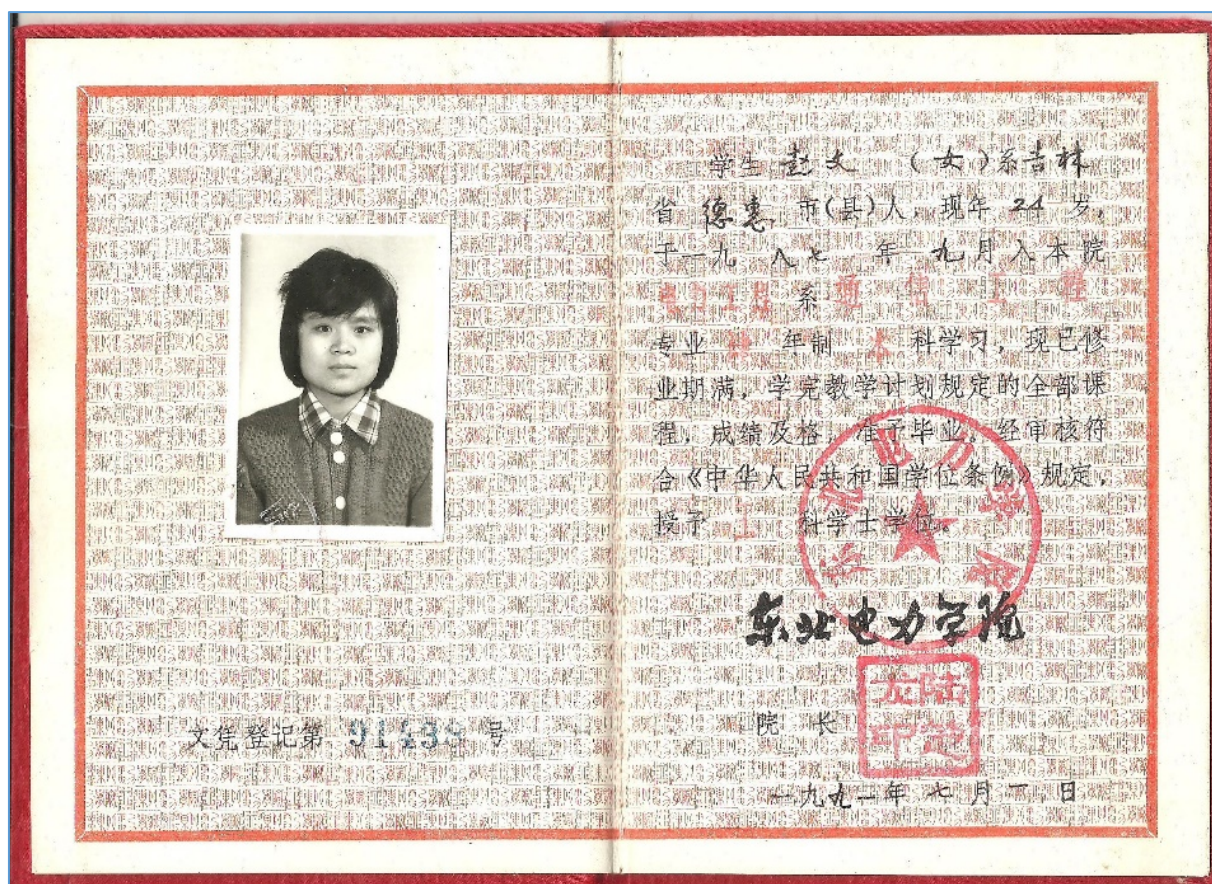 文凭登记第 91438 号
学生 赵文 (女)系吉林
省 德惠 市(县)人,现年 24 岁,
于一九 八七 年 九月入本院
电力工程 系 通信工程
专业 肆 年制 本 科学习,现已修
业期满,学完教学计划规定的全部课
程,成绩及格,准予毕业。经审核符
合《中华人民共和国学位条例》规定,
授予 工 科学士学位。
东北电力学院
东北电力学院
院 长
一九九一年 七 月 一 日